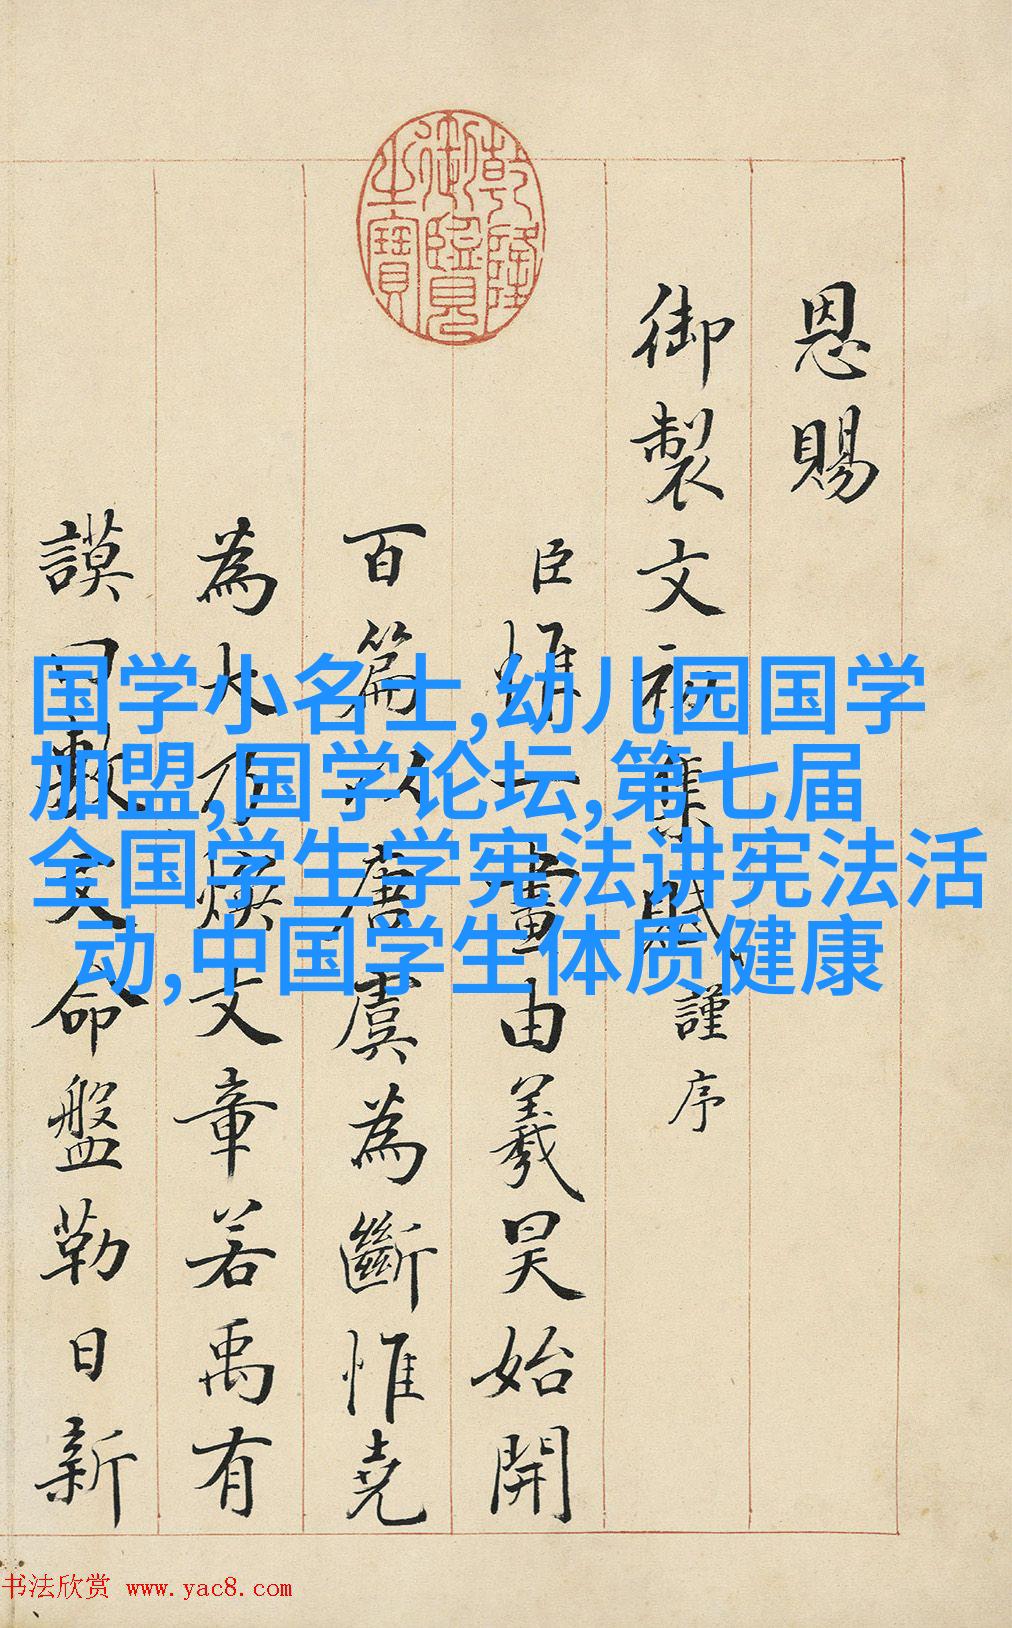 乾隆
御覽
之寶
恩賜
御製文初集賦謹序
臣惟一畫由羲昊始開
百篇以唐虞為斷惟堯
為大乃煥文章若禹有
謨曰敷文命盤勒日新
国学小名士,幼儿园国学
加盟,国学论坛,第七届
全国学生学宪法讲宪法活
动,中国学生体质健康
书法欣赏 www.yac8.com